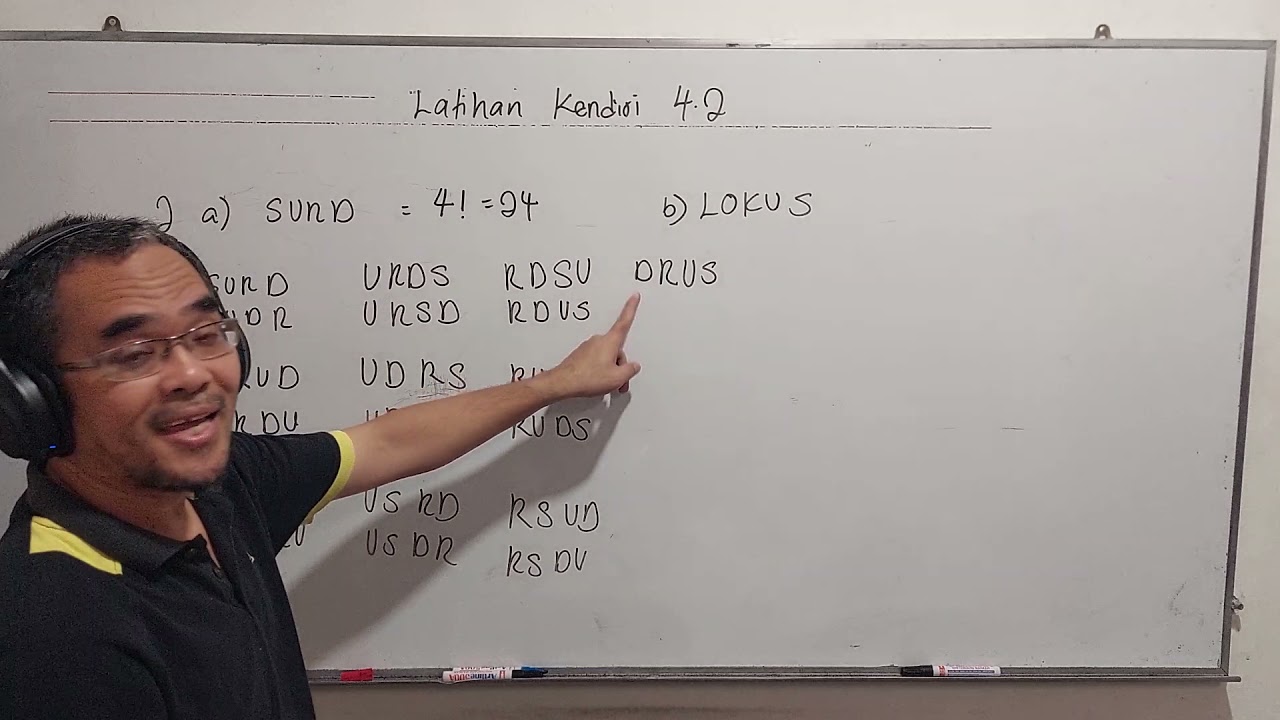 Latihan Kendiri 4.2
2 a) SURD = 4! = 24 b) LOKUS
SURD URDS RDSU DRUS
URSD RDUS
UDRS
RUDS
USRD RSUD
USDR RSDU